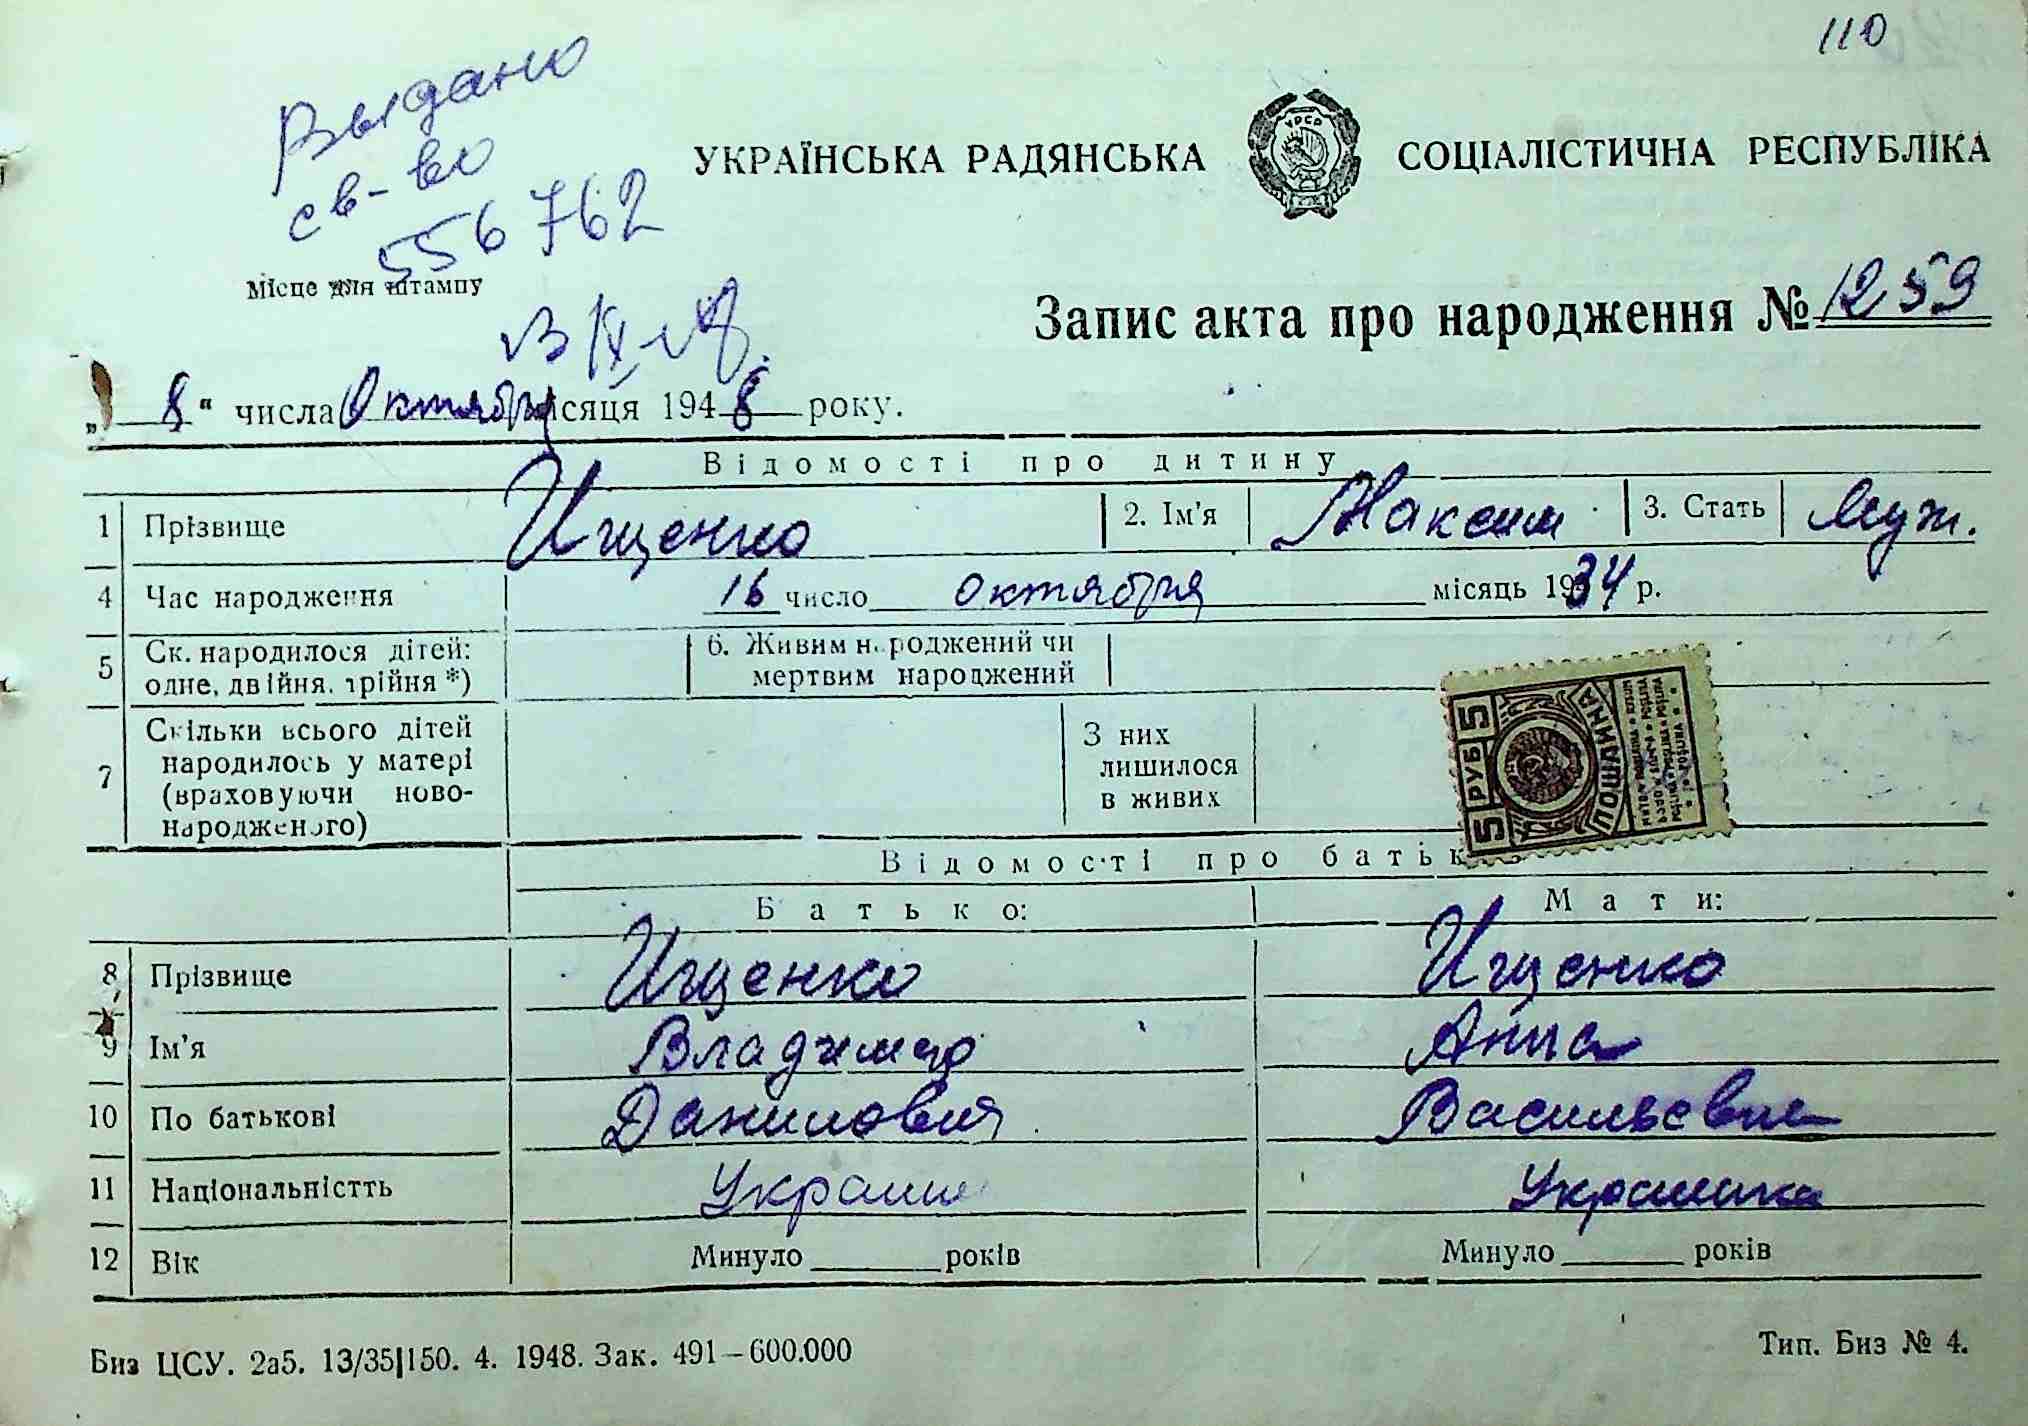 110
Выдано
св-во
556762
УКРАЇНСЬКА РАДЯНСЬКА СОЦІАЛІСТИЧНА РЕСПУБЛІКА
УРСР
Місце для штампу
Запис акта про народження № 1259
„ 8 " числа Октября місяця 1948 року.
Відомості про дитину
1 Прізвище Ищенко 2. Ім'я Максим 3. Стать Муж.
4 Час народження 16 число октября місяць 1934 р.
5 Ск. народилося дітей: одне, двійня, трійня *) 6. Живим народжений чи мертвим народжений
7 Скільки всього дітей народилось у матері (враховуючи новонародженого) З них лишилося в живих
5 РУБ 5
ПОШЛИНА
Відомості про батьк
Батько: Мати:
8 Прізвище Ищенко Ищенко
9 Ім'я Владимир Анна
10 По батькові Данилович Васильевна
11 Національністть Украин Украинка
12 Вік Минуло років Минуло років
Биз ЦСУ. 2а5. 13/35|150. 4. 1948. Зак. 491–600.000
Тип. Биз № 4.